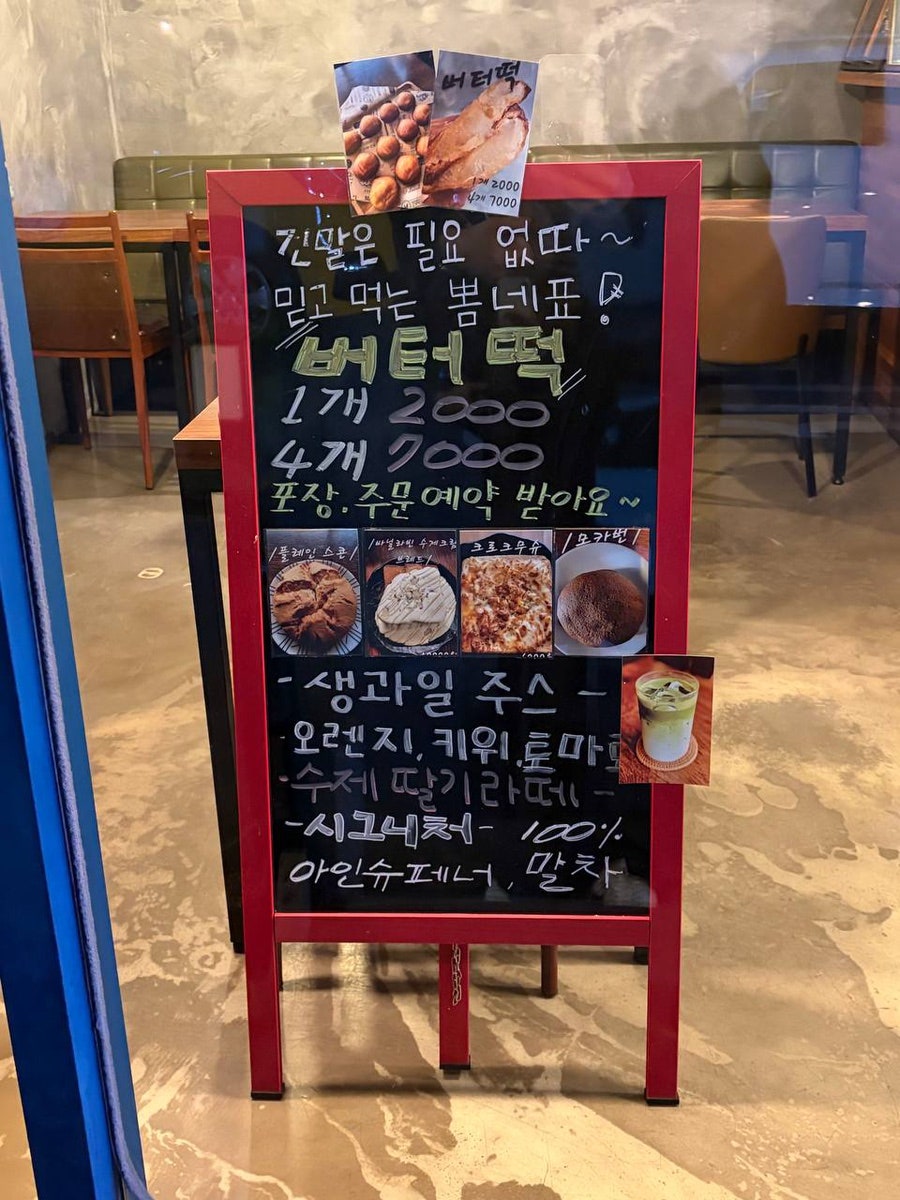 버터떡
1개 2000
4개 7000
긴말은 필요 없따~
믿고 먹는 뽐네표!
버터떡
1개 2000
4개 7000
포장.주문예약 받아요~
/플레인 스콘/
/바닐라빈 수제크림
브레드/
크로크무슈
/모카번/
-생과일 주스-
오렌지, 키위, 토마
-수제 딸기라떼-
-시그니처- 100%
아인슈페너, 말차